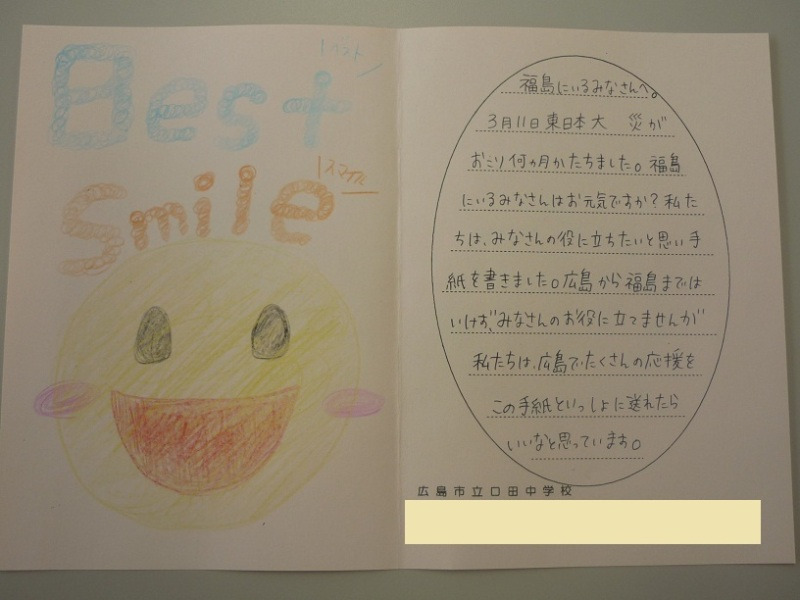 Best
ベスト
Smile
スマイル
福島にいるみなさんへ。
3月11日東日本大 災が
おこり何ヶ月かたちました。福島
にいるみなさんはお元気ですか?私た
ちは、みなさんの役に立ちたいと思い手
紙を書きました。広島から福島までは
いけず、みなさんのお役に立てませんが
私たちは、広島で、たくさんの応援を
この手紙といっしょに送れたら
いいなと思っています。
広島市立口田中学校